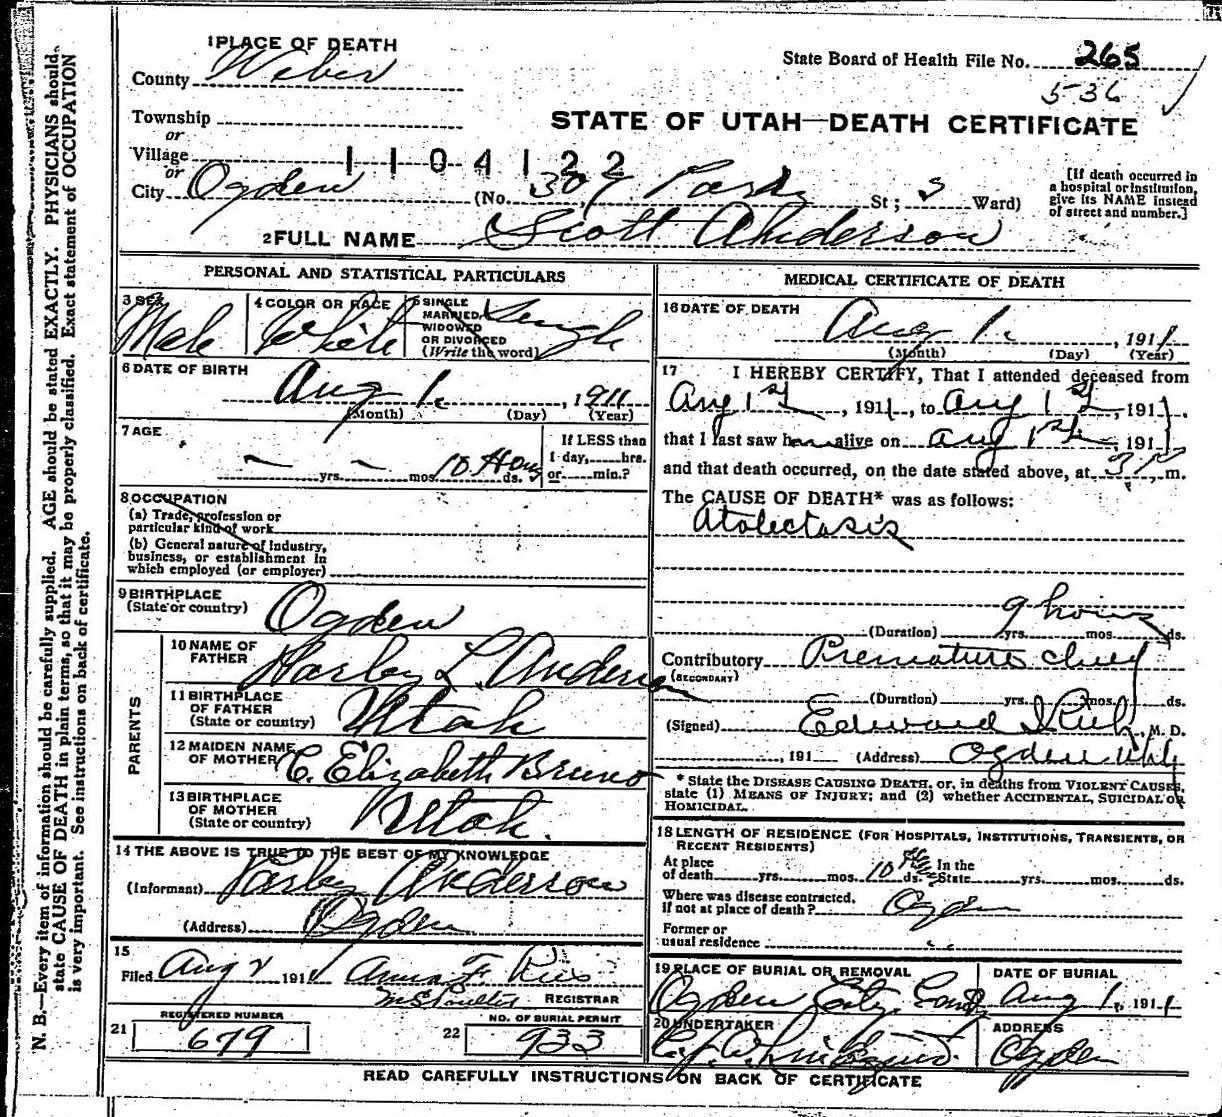 1 PLACE OF DEATH
County Weber
State Board of Health File No. 265
536
Township
or
Village
or
1104122
STATE OF UTAH—DEATH CERTIFICATE
City Ogden (No. 307 Park St; 3 Ward)
[If death occurred in
a hospital or institution,
give its NAME instead
of street and number.]
2 FULL NAME Scott Anderson
PERSONAL AND STATISTICAL PARTICULARS
3 SEX Male
4 COLOR OR RACE White
5 SINGLE
MARRIED,
WIDOWED
OR DIVORCED
(Write the word)
6 DATE OF BIRTH
Aug 1. , 1911
(Month) (Day) (Year)
7 AGE
yrs. mos. 10 Hours ds.
If LESS than
1 day, hrs.
or min.?
8 OCCUPATION
(a) Trade, profession or
particular kind of work
(b) General nature of industry,
business, or establishment in
which employed (or employer)
9 BIRTHPLACE
(State or country) Ogden
PARENTS
10 NAME OF
FATHER L. Anderson
11 BIRTHPLACE
OF FATHER
(State or country) Utah
12 MAIDEN NAME
OF MOTHER C. Elizabeth Bruno
13 BIRTHPLACE
OF MOTHER
(State or country) Utah.
14 THE ABOVE IS TRUE TO THE BEST OF MY KNOWLEDGE
(Informant) Anderson
(Address) Ogden
15
Filed Aug 2 1911 Anna F.
REGISTRAR
21 REGISTERED NUMBER
679
22 NO. OF BURIAL PERMIT
933
MEDICAL CERTIFICATE OF DEATH
16 DATE OF DEATH
Aug 1. , 1911
(Month) (Day) (Year)
17 I HEREBY CERTIFY, That I attended deceased from
Aug 1st , 1911, to Aug 1st , 1911.
that I last saw h alive on Aug 1st , 1911
and that death occurred, on the date stated above, at 3 P m.
The CAUSE OF DEATH* was as follows:
Atolectasis
9 hours
(Duration) yrs. mos. ds.
Contributory Premature
(SECONDARY)
(Duration) yrs. mos. ds.
(Signed) Edward M. D.
, 191 (Address) Ogden Utah
* State the DISEASE CAUSING DEATH, or, in deaths from VIOLENT CAUSES,
state (1) MEANS OF INJURY; and (2) whether ACCIDENTAL, SUICIDAL OR
HOMICIDAL.
18 LENGTH OF RESIDENCE (FOR HOSPITALS, INSTITUTIONS, TRANSIENTS, OR
RECENT RESIDENTS)
At place
of death yrs. mos. 10 Hrs ds. In the
State yrs. mos. ds.
Where was disease contracted,
if not at place of death? Ogden
Former or
usual residence
19 PLACE OF BURIAL OR REMOVAL
Ogden City
DATE OF BURIAL
Aug 1, 1911
20 UNDERTAKER
ADDRESS
Ogden
READ CAREFULLY INSTRUCTIONS ON BACK OF CERTIFICATE
N. B.—Every item of information should be carefully supplied. AGE should be stated EXACTLY. PHYSICIANS should
state CAUSE OF DEATH in plain terms, so that it may be properly classified. Exact statement of OCCUPATION
is very important. See instructions on back of certificate.